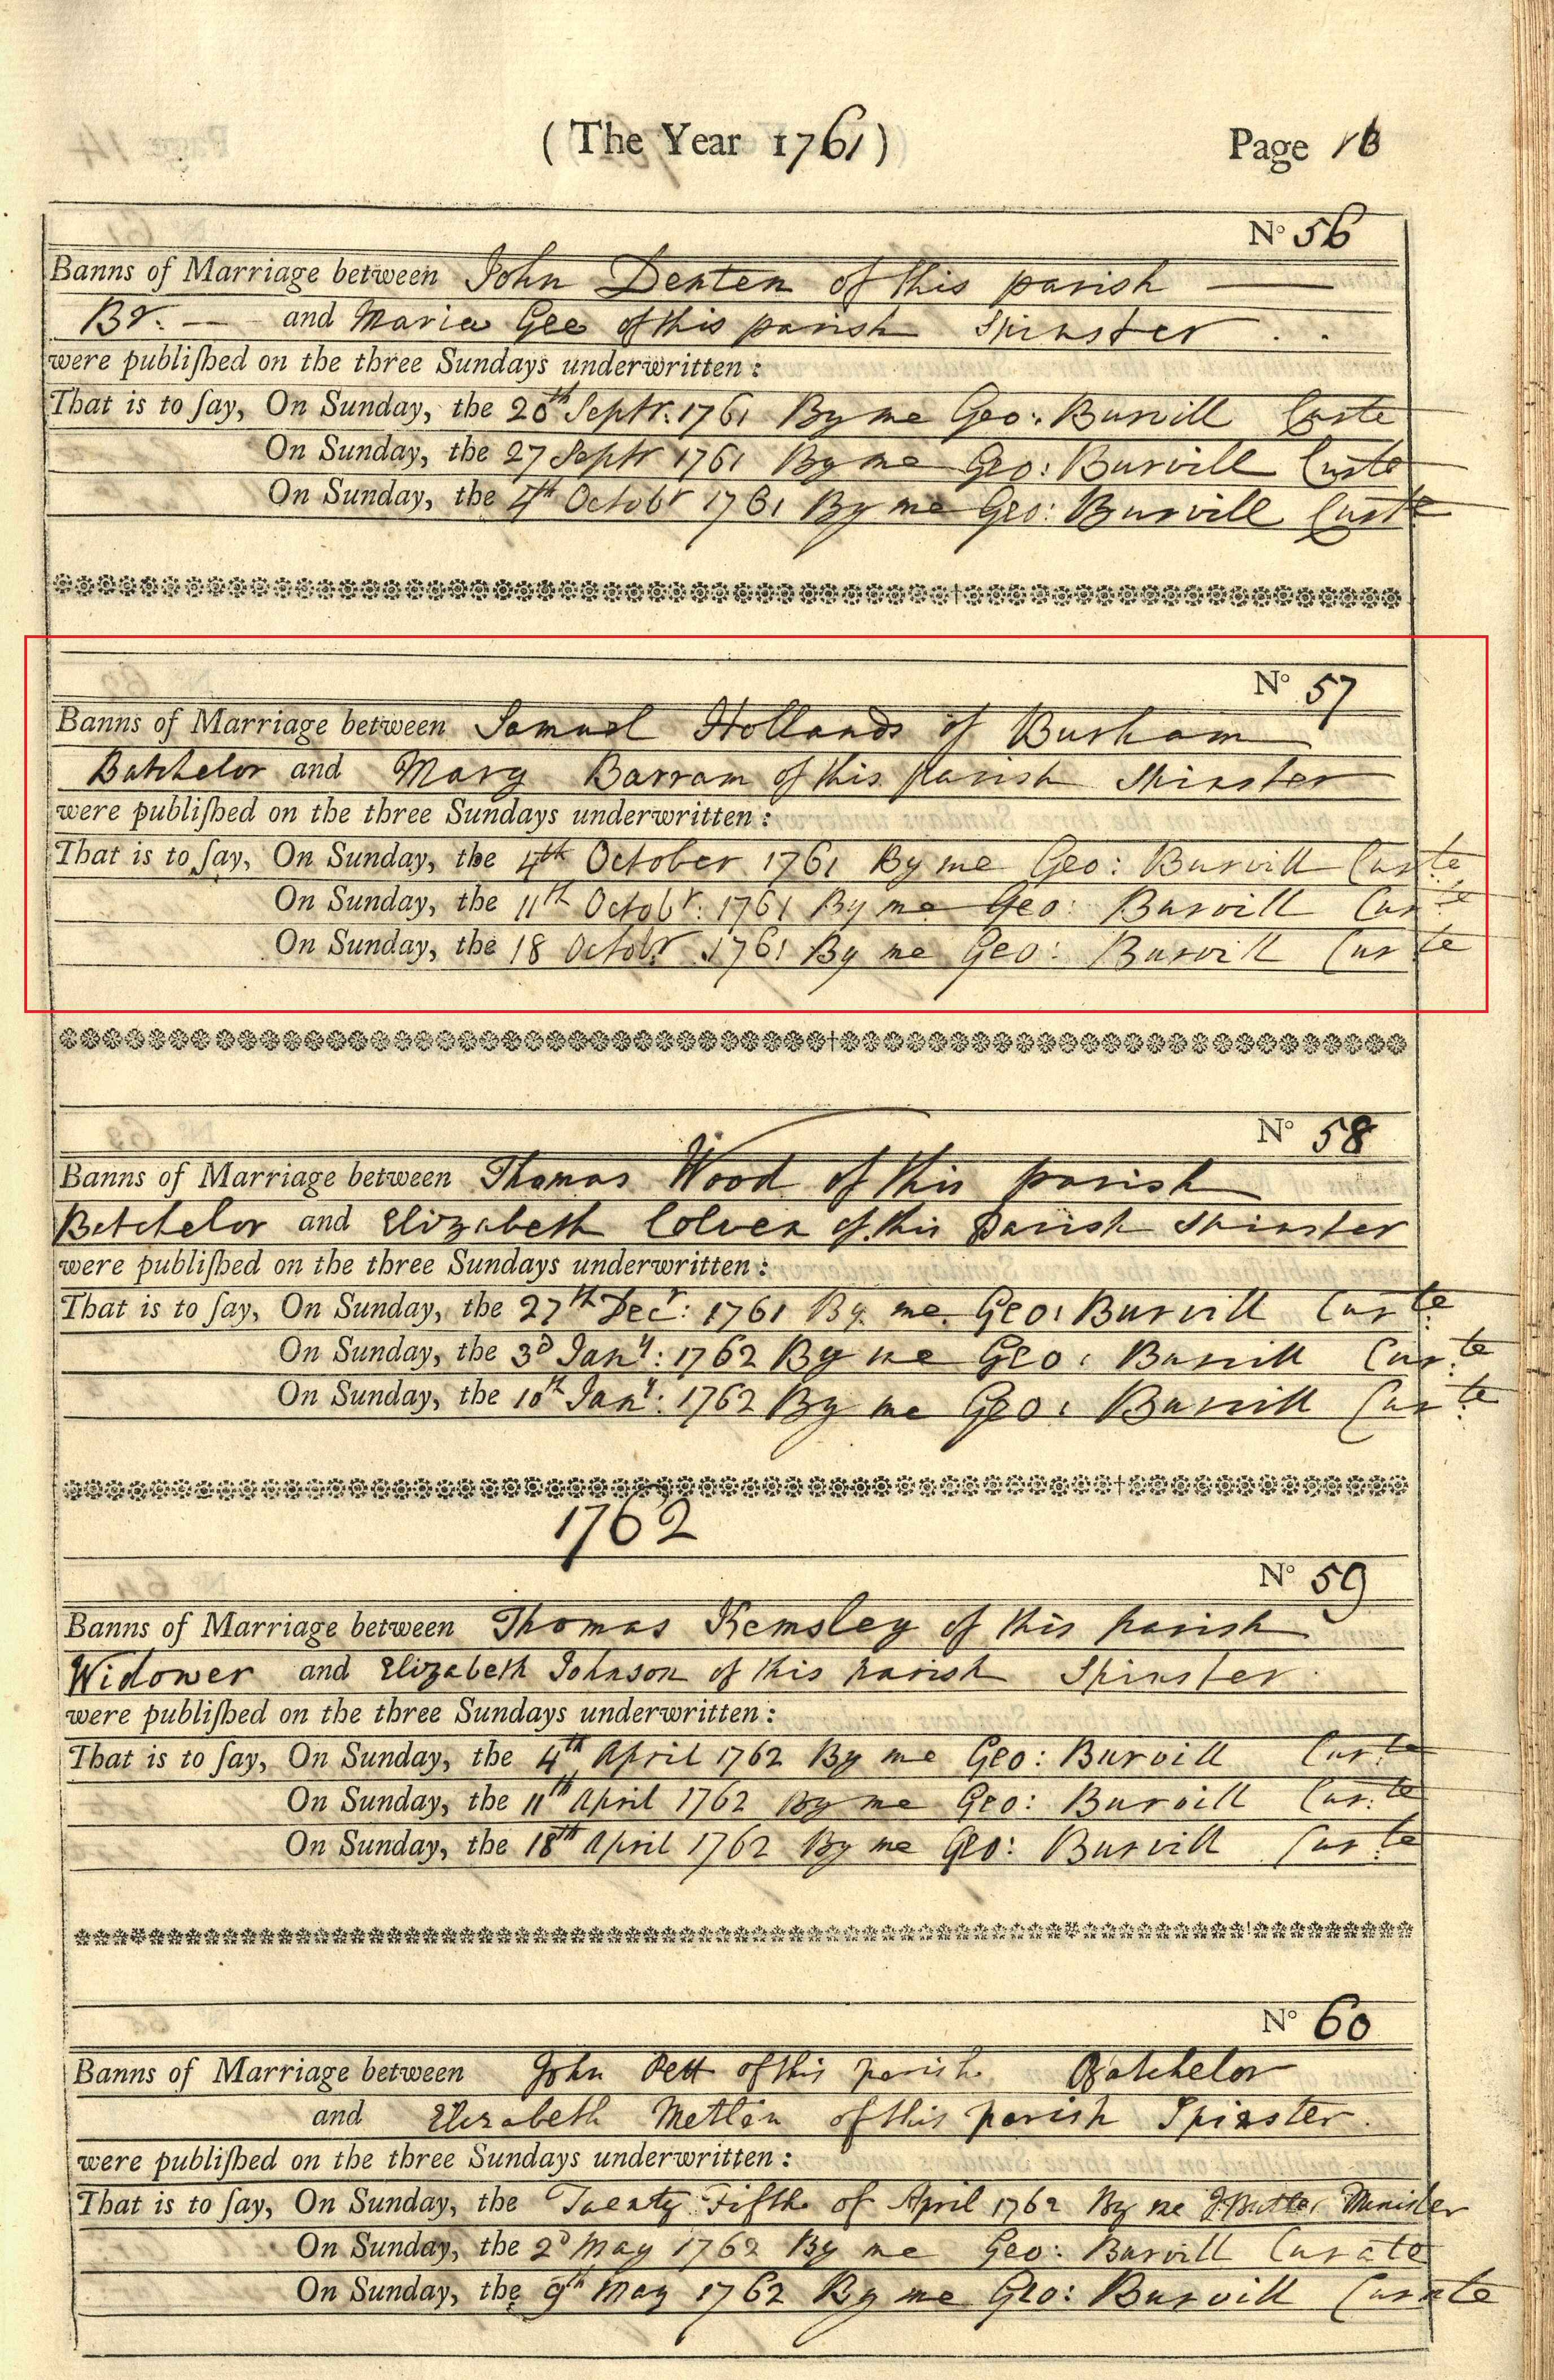 ( The Year 1761 )
Page 13
No 56
Banns of Marriage between John Denten of this parish
Br. and Maria Gee of this parish Spinster
were publiſhed on the three Sundays underwritten :
That is to ſay, On Sunday, the 20th Septr. 1761 By me Geo: Burvill Curte
On Sunday, the 27 Septr 1761 By me Geo: Burvill Curte
On Sunday, the 4th Octobr 1761 By me Geo: Burvill Curte
No 57
Banns of Marriage between Samuel Hollands of Burham
Batchelor and Mary Barram of this parish Spinster
were publiſhed on the three Sundays underwritten :
That is to ſay, On Sunday, the 4th October 1761 By me Geo: Burvill Curte
On Sunday, the 11th Octobr: 1761 By me Geo: Burvill Curte
On Sunday, the 18 Octobr 1761 By me Geo: Burvill Curte
No 58
Banns of Marriage between Thomas Wood of this parish
Batchelor and Elizabeth Colven of this Parish Spinster
were publiſhed on the three Sundays underwritten :
That is to ſay, On Sunday, the 27th Decr: 1761 By me Geo: Burvill Curte
On Sunday, the 3d Jany: 1762 By me Geo: Burvill Curte
On Sunday, the 10th Jany: 1762 By me Geo: Burvill Curte
1762
No 59
Banns of Marriage between Thomas Kemsley of this parish
Widower and Elizabeth Johnson of this parish Spinster
were publiſhed on the three Sundays underwritten :
That is to ſay, On Sunday, the 4th April 1762 By me Geo: Burvill Curte
On Sunday, the 11th April 1762 By me Geo: Burvill Curte
On Sunday, the 18th April 1762 By me Geo: Burvill Curte
No 60
Banns of Marriage between John Pett of this parish Batchelor
and Elizabeth Metten of this parish Spinster.
were publiſhed on the three Sundays underwritten :
That is to ſay, On Sunday, the Twenty Fifth of April 1762 By me J. Butler Minister
On Sunday, the 2d May 1762 By me Geo: Burvill Curate
On Sunday, the 9th May 1762 By me Geo: Burvill Curate